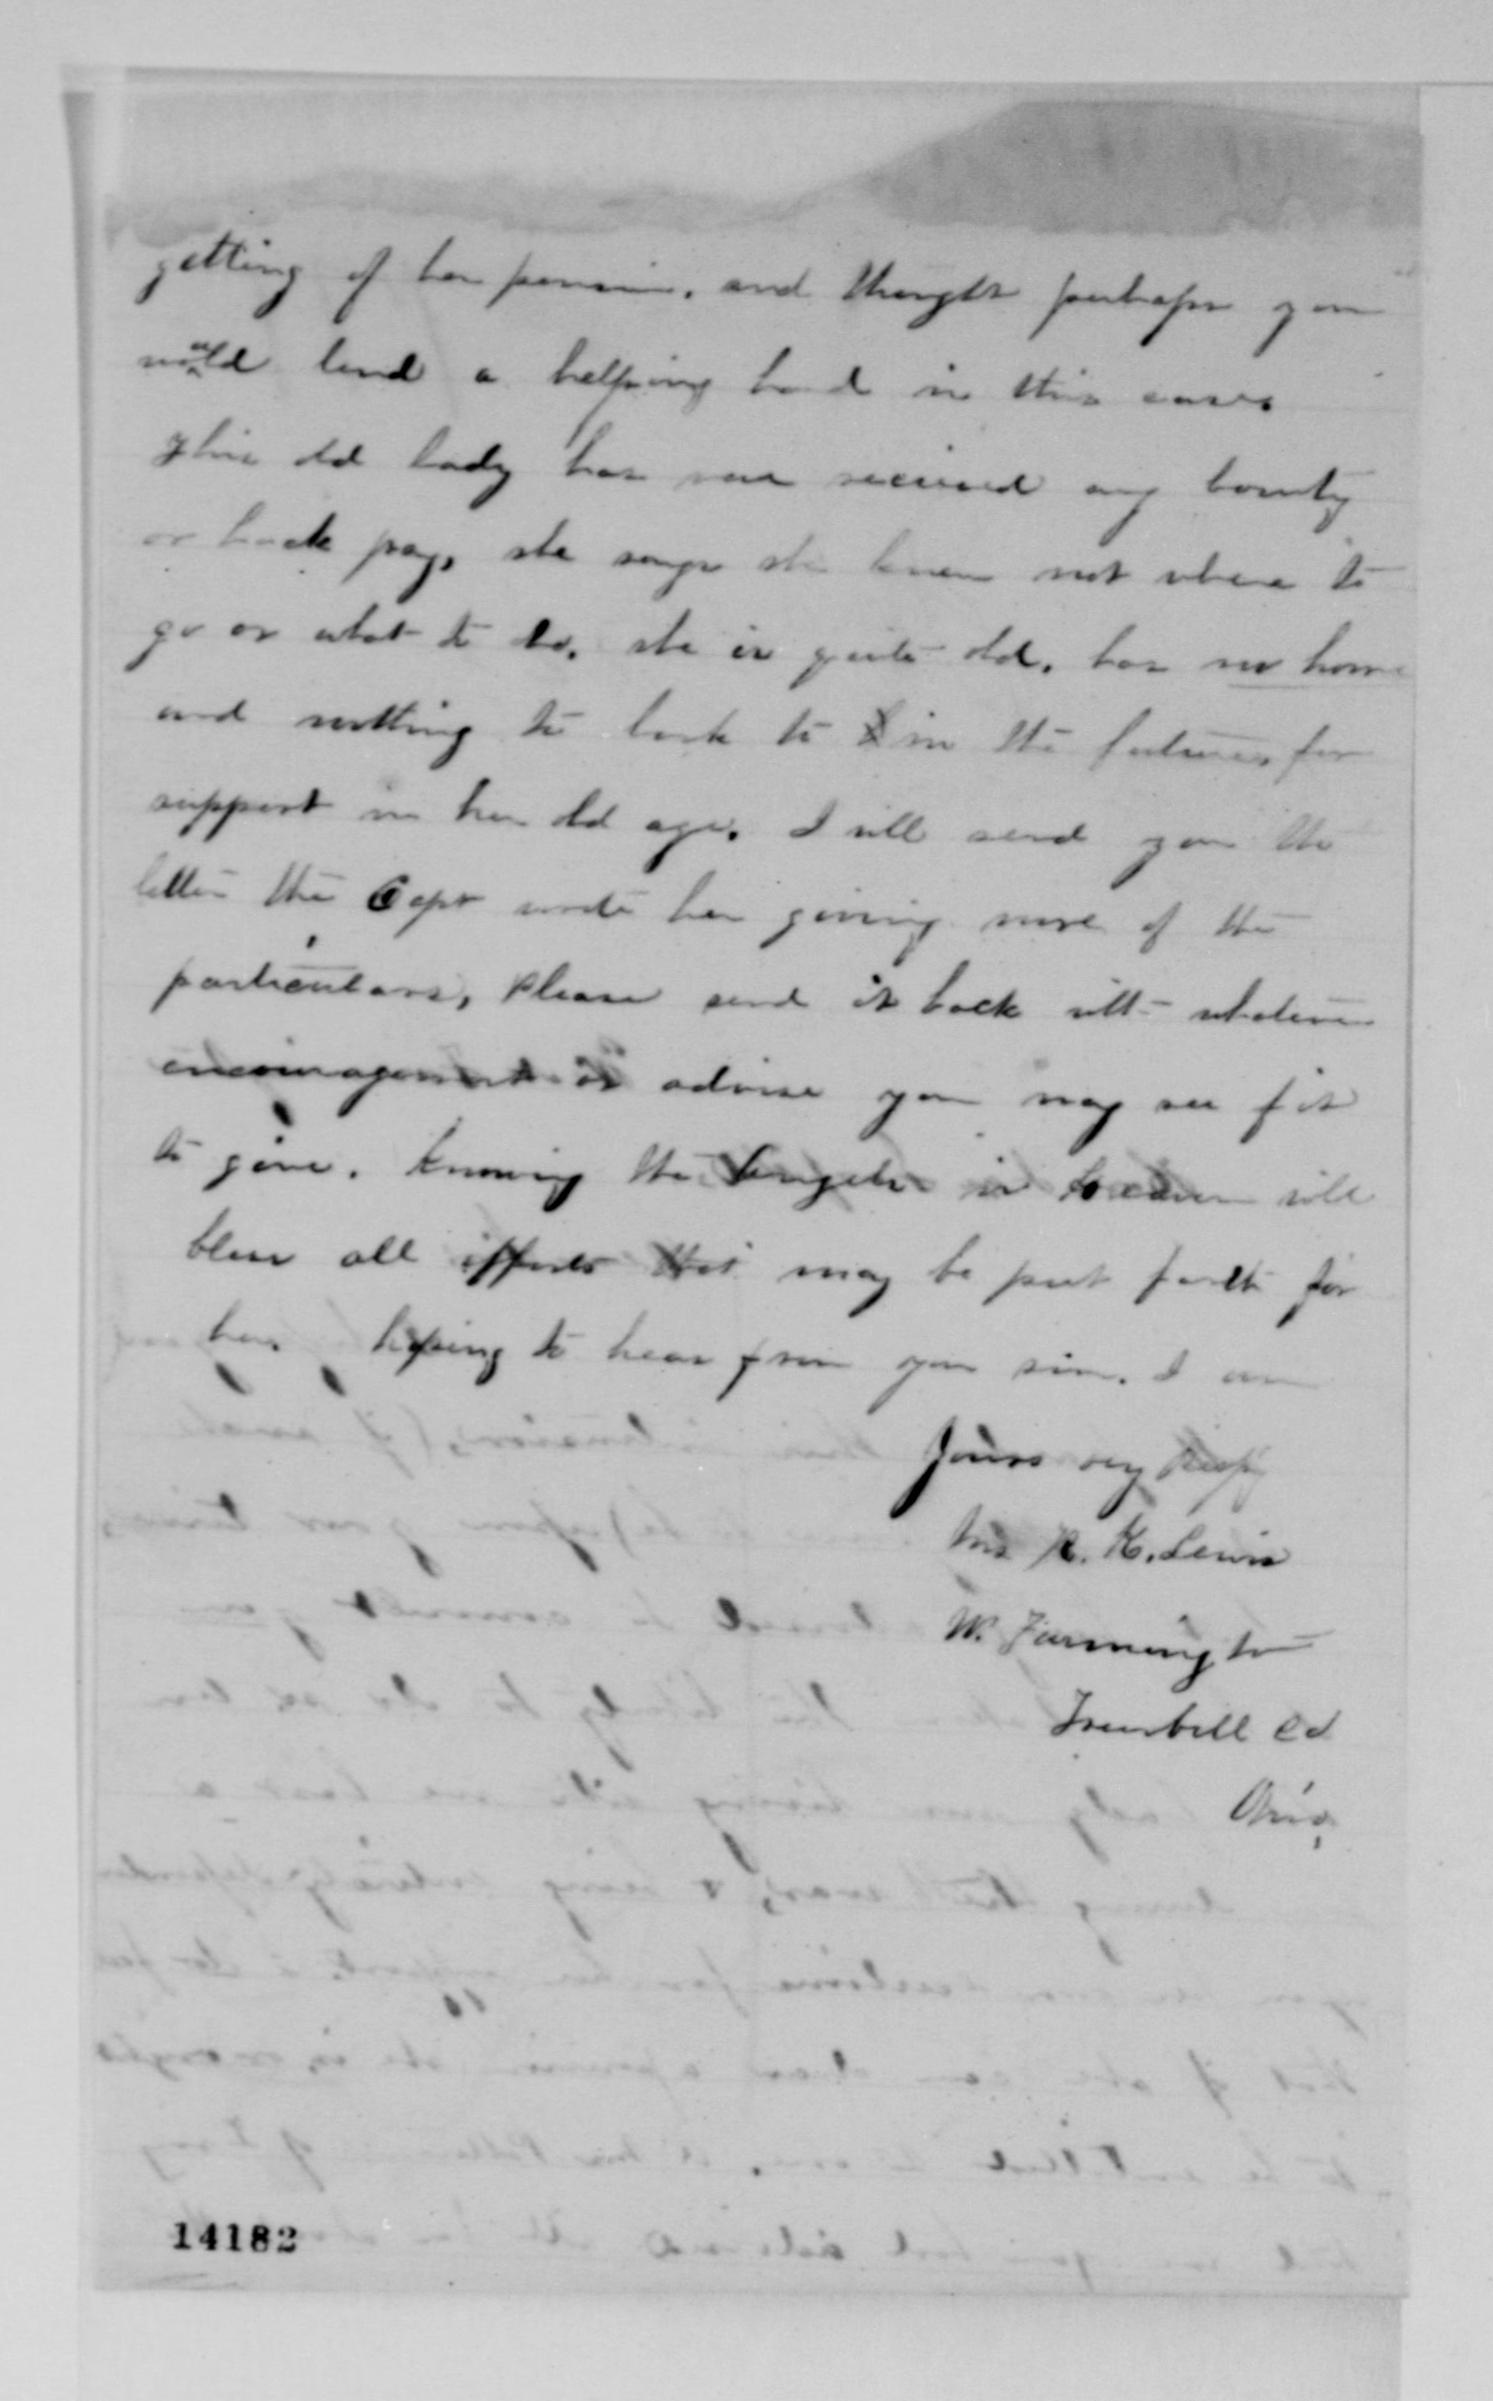 getting of her pension, and thought perhaps you
would lend a helping hand in this case.
This old lady has never received any bounty
or back pay, she says she knew not where to
go or what to do. she is quite old, has no home
and nothing to look to in the future, for
support in her old age. I will send you the
letter the Capt wrote her giving more of the
particulars, Please send it back with whatever
encouragement or advise you may see fit
to give. Knowing the Angels in heaven will
bless all efforts that may be put forth for
her, hoping to hear from you soon. I am
Yours very Respy
Mrs R. H. Lewis
W. Farmington
Trumbull Co
Ohio,
14182